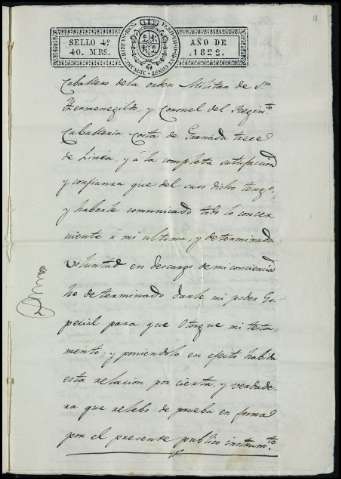 SELLO 4º
40. MRS.
AÑO DE
1822.
Caballero de la orden Militar de Sn
Hermenegildo y Coronel del Regimto
Caballeria Costa de Granada trece
de Linea, y á la completa satisfaccion
y confianza que del caso dicho tengo,
y haberle comunicado todo lo concer
niente á mi ultima, y determinada
voluntad en descargo de mi conciencia
he determinado darle mi poder Es
pecial para que otorgue mi testa
mento, y poniendolo en efecto habida
esta relacion por cierta, y verdade
ra que relebo de prueba en forma
por el presente publico instrumto